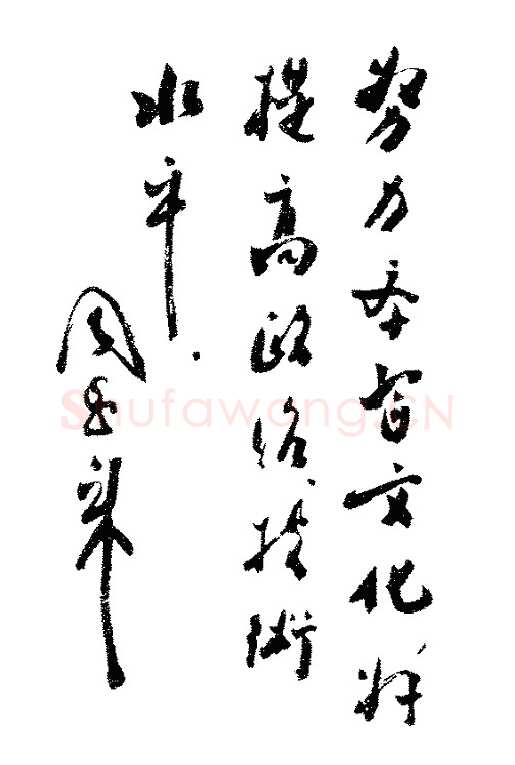 努力学習文化
提高政治技術
水平.
周恩来
Shufawang.CN